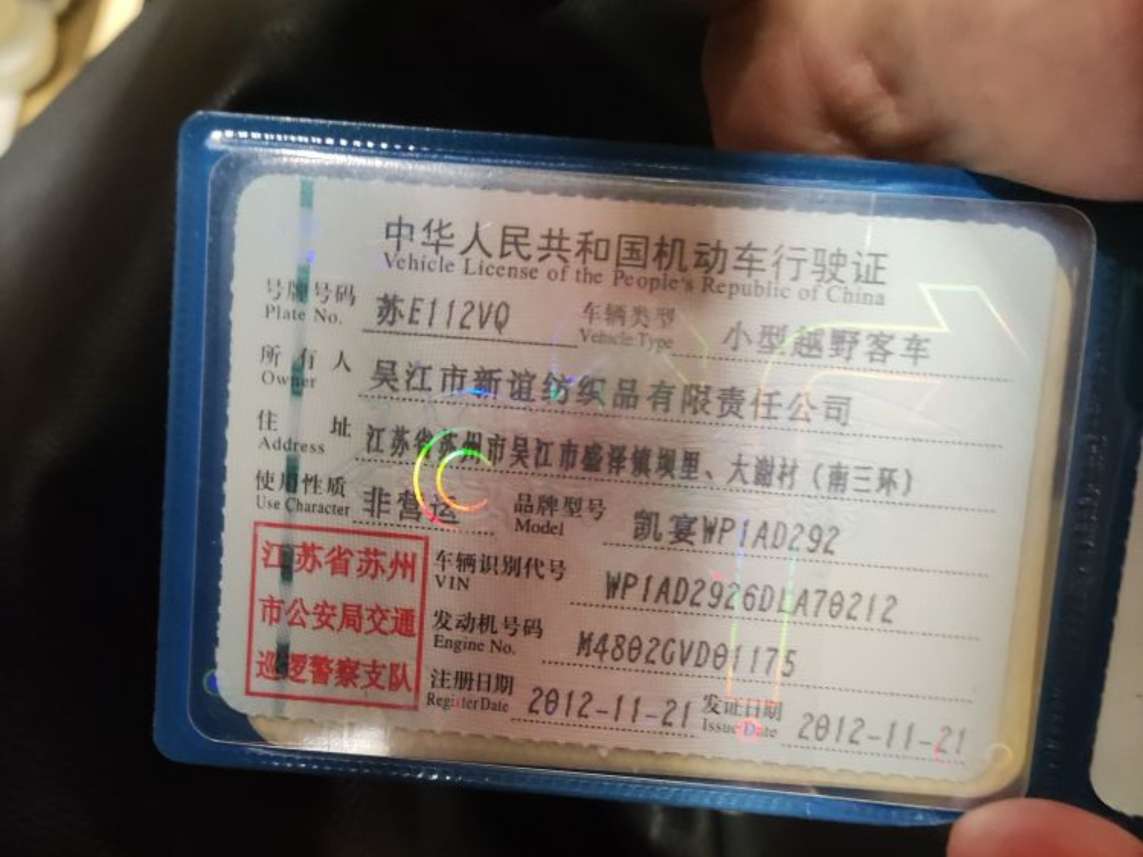 中华人民共和国机动车行驶证
Vehicle License of the People's Republic of China
号牌号码 苏E112VQ 车辆类型 小型越野客车
Plate No. Vehicle Type
所有人 吴江市新谊纺织品有限责任公司
Owner
住址 江苏省苏州市吴江市盛泽镇坝里、大谢村(南三环)
Address
使用性质 非营运 品牌型号 凯宴WP1AD292
Use Character Model
江苏省苏州
市公安局交通
巡逻警察支队
车辆识别代号 WP1AD2926DLA70212
VIN
发动机号码 M4802GVD01175
Engine No.
注册日期 2012-11-21 发证日期 2012-11-21
Register Date Issue Date